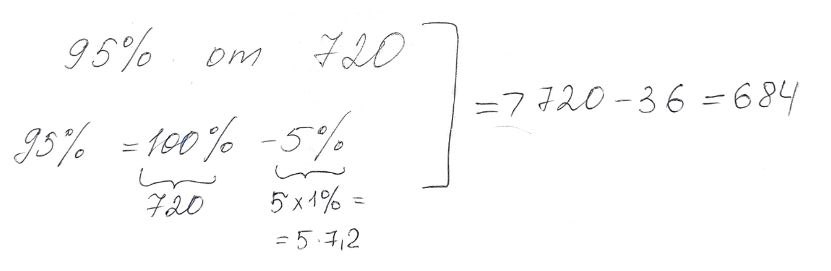 95% от 720
95% = 100% - 5%
720 5 x 1% =
= 5 · 7,2
=> 720 - 36 = 684